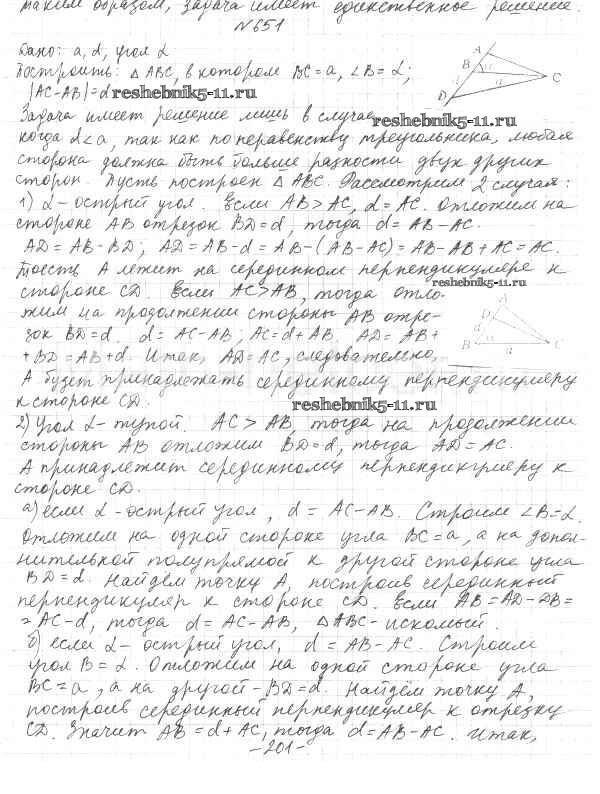 таким образом, задача имеет единственное решение.
№651
Дано: a, d, угол α
Построить: △ABC, в котором BC=a, ∠B=α;
|AC-AB|=d
reshebnik5-11.ru
Задача имеет решение лишь в случае,
reshebnik5-11.ru
когда d<a, так как по неравенству треугольника, любая
сторона должна быть больше разности двух других
сторон. Пусть построен △ABC. Рассмотрим 2 случая:
1) α-острый угол. Если AB>AC, d=AC. Отложим на
стороне AB отрезок BD=d, тогда d=AB-AC.
AD=AB-BD; AD=AB-d=AB-(AB-AC)=AB-AB+AC=AC.
То есть A лежит на серединном перпендикуляре к
reshebnik5-11.ru
стороне CD. Если AC>AB, тогда отло-
жим на продолжении стороны AB отре-
зок BD=d. d=AC-AB; AC=d+AB. AD=AB+
+BD=AB+d. Итак, AD=AC, следовательно,
A будет принадлежать серединному перпендикуляру
к стороне CD.
reshebnik5-11.ru
2) Угол α-тупой. AC>AB, тогда на продолжении
стороны AB отложим BD=d, тогда AD=AC.
A принадлежит серединному перпендикуляру к
стороне CD.
а) если α-острый угол, d=AC-AB. Строим ∠B=α.
Отложим на одной стороне угла BC=a, а на допол-
нительной полупрямой к другой стороне угла
BD=d. Найдём точку A, построив серединный
перпендикуляр к стороне CD. Если AB=AD-DB=
=AC-d, тогда d=AC-AB, △ABC-искомый.
б) если α-острый угол, d=AB-AC. Строим
угол B=α. Отложим на одной стороне угла
BC=a, а на другой-BD=d. Найдём точку A,
построив серединный перпендикуляр к отрезку
CD. Значит AB=d+AC, тогда d=AB-AC. Итак,
-201-
A
B
α
C
d
D
A
D
d
B
α
a
C